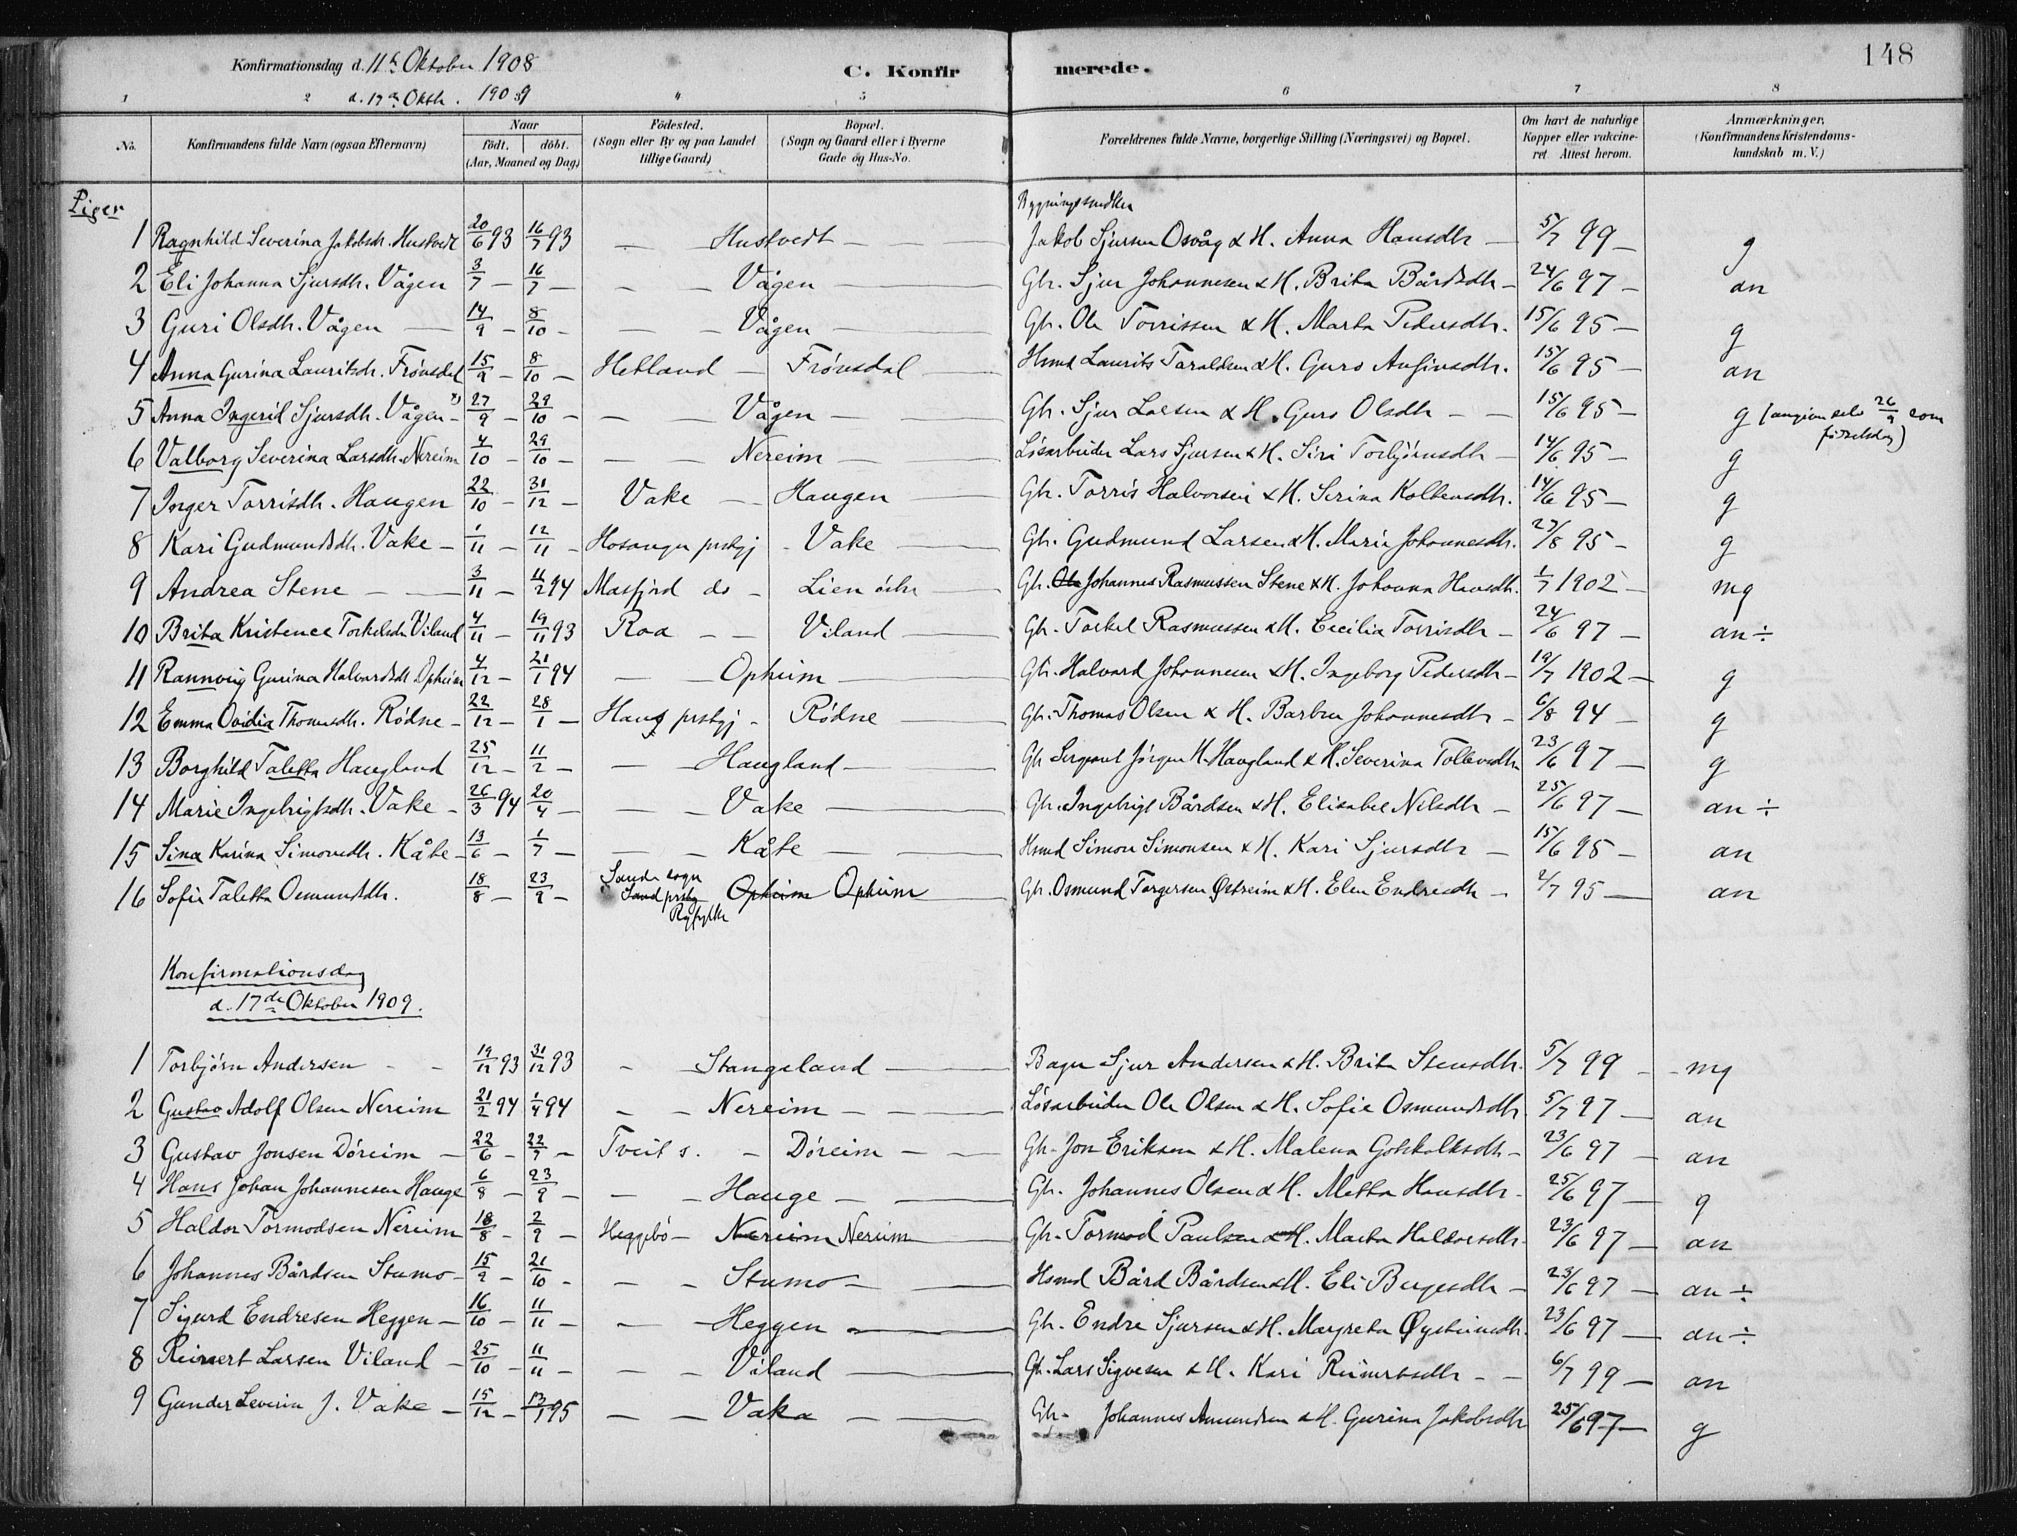 148
Konfirmationsdag d. 11te Oktober 1908
d. 17de Oktbr. 1909
C. Konfirmerede.
1 2 4 5 6 7 8
No. Konfirmandens fulde Navn (ogsaa Efternavn) Naar født. døbt. (Aar, Maaned og Dag) Fødested. (Sogn eller By og paa Landet tillige Gaard) Bopæl. (Sogn og Gaard eller i Byerne Gade og Hus-No. Forældrenes fulde Navne, borgerlige Stilling (Næringsvei) og Bopæl. Om havt de naturlige Kopper eller vakcineret Attest herom. Anmærkninger. (Konfirmandens Kristendomskundskab m. V.)
Piger
Bygningssnedker
1 Ragnhild Severina Jakobsdr. Hustvedt 20/6 93 16/7 93 — Hustvedt — Jakob Sjursen Osvåg & H. Anna Hansdtr — 5/7 99 — g
2 Eli Johanna Sjursdtr. Vågen 3/7 — 16/7 — — — Vågen — Gbr. Sjur Johannesen & H. Brita Bårdsdtr — 24/6 97 — an
3 Guri Olsdtr. Vågen — 14/9 — 8/10 — — — Vågen — Gbr. Ole Torrissen & H. Marta Pedersdtr. 15/6 95 — g
4 Anna Gurina Lauritsdr. Frønsdal 15/9 — 8/10 — Hetland — Frønsdal — Hsmd Laurits Taraldsen & H. Guro Anfinsdtr. 15/6 95 — an
5 Anna Ingerid Sjursdtr. Vågen 27/9 — 29/10 — — — Vågen — Gbr. Sjur Larsen & H. Guro Olsdtr — — 15/6 95 — g (angiver selv 26/9 som fødselsdag)
6 Valborg Severina Larsdtr. Nereim 4/10 — 29/10 — — Nereim — Løsarbeider Lars Sjursen & H. Siri Torbjørnsdtr — 14/6 95 — g
7 Inger Torrisdtr. Haugen 22/10 — 31/12 — Vake — Haugen — Gbr. Torris Halvorsen & H. Serina Kolbensdtr. 14/6 95 — g
8 Kari Gudmundsdtr. Vake — 1/11 — 12/11 — Hosanger prstgj — Vake — Gbr. Gudmund Larsen & H. Marie Johannesdtr. 27/8 95 — g
9 Andrea Stene — — 3/11 — 11/2 94 Masfjord do — Lien østre — Gbr. Ole Johannes Rasmussen Stene & H. Johanna Hansdtr. 1/7 1902 — mg
10 Brita Kristence Torkelsdtr Viland 4/11 — 19/11 93 Roa — — Viland — Gbr. Torkel Rasmussen & H. Cecilia Torrisdtr — 24/6 97 — an ÷
11 Rannveig Gurina Halvardsdtr. Opheim 4/12 — 21/1 94 — Opheim — Gbr. Halvard Johannesen & H. Ingeborg Pedersdtr — 19/7 1902 — g
12 Emma Ovidia Thomasdtr. Rødne — 22/12 — 28/1 — Haug prstgj — Rødne Gbr. Thomas Olsen & H. Barbra Johannesdtr — 6/8 94 — g
13 Borghild Taletta Haugland 25/12 — 11/2 — — Haugland — Gbr Sergeant Jørgen H. Haugland & H. Severina Tollevsdtr 23/6 97 — g
14 Marie Ingebrigtsdtr. Vake — 26/3 94 20/4 — — — Vake — Gbr. Ingebrigt Bårdsen & H. Elisabet Nilsdtr — 25/6 97 — an ÷
15 Sina Karina Simonsdtr. Kåte — 13/6 — 1/7 — — — Kåte — Hsmd Simon Simonsen & H. Kari Sjursdtr — 15/6 95 — an
16 Sofie Taletta Osmundsdtr. 18/8 — 23/9 — Sands sogn Sand prstgj Ryfylke Opheim Opheim — Gbr. Osmund Torgersen Østreim & H. Elen Endresdtr — 2/7 95 — an
Konfirmationsdag
d. 17de Oktober 1909.
1 Torbjørn Andersen — — 19/12 93 31/12 93 — Stangeland — Bager Sjur Andersen & H. Brita Stensdtr. 5/7 99 — mg
2 Gustav Adolf Olsen Nereim 21/2 94 1/4 94 — — Nereim — Løsarbeider Ole Olsen & H. Sofie Osmundsdtr 5/7 97 — an
3 Gustav Jonsen Døreim — 22/6 — 22/7 — Tveit s. — Døreim — — Gbr. Jon Eriksen & H. Malena Gotskalksdtr — 23/6 97 — an
4 Hans Johan Johannesen Hauge 6/8 — 23/9 — — — Hauge — Gbr. Johannes Olsen & H. Metta Hansdtr — 25/6 97 — g
5 Haldor Tormodsen Nereim 18/8 — 2/9 — Heggebø — Nereim Nereim — Gbr. Tormod Paulsen & H. Marta Haldorsdtr — 23/6 97 — an
6 Johannes Bårdsen Stumo — 15/9 — 21/10 — — — Stumo — Hsmd Bård Bårdsen & H. Eli Børgesdtr — 23/6 97 — an ÷
7 Sigurd Endresen Heggen — 16/10 — 11/11 — — Heggen — Gbr. Endre Sjursen & H. Margreta Øysteinsdtr. 23/6 97 — an ÷
8 Reinert Larsen Viland — 25/10 — 11/11 — — — Viland — Gbr. Lars Sigvesen & H. Kari Reinertsdtr — — 6/7 99 — an
9 Gunder Severin J. Vake — 15/12 — 13/1 95 — — Vaka — Gbr. Johannes Amundsen & H. Gurina Jakobsdtr 25/6 97 — g